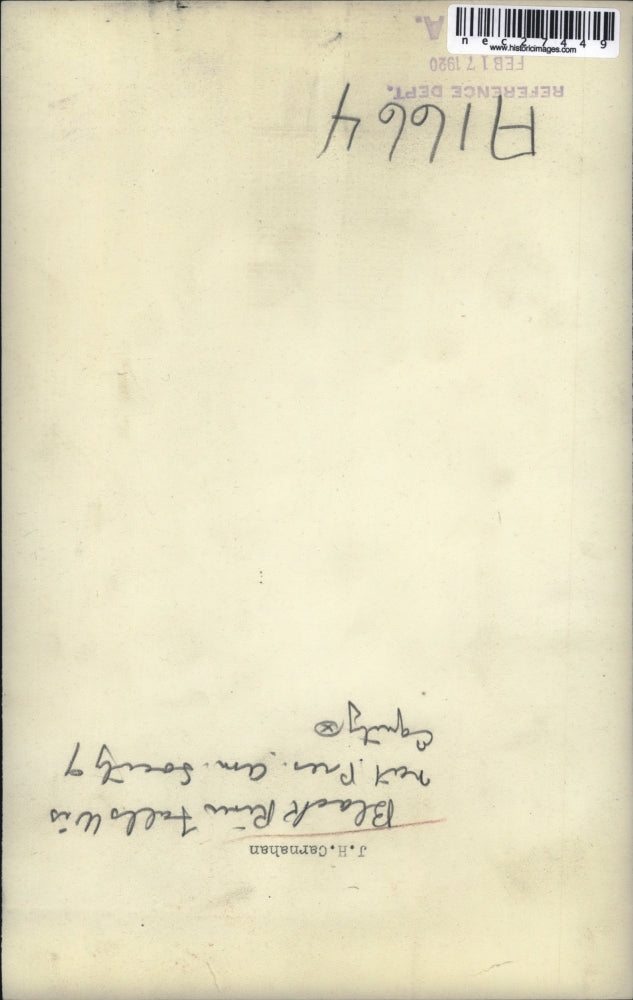 J.H.Carnahan
Black River Falls Wis
nat. Pres. Am. Society of
Equity
A1664
REFERENCE DEPT.
FEB 17 1920
A.
nec27449
www.historicimages.com